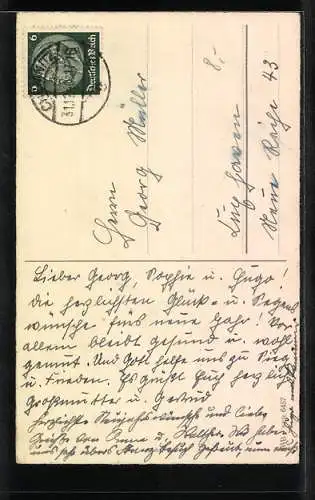 6 6
Deutsches Reich
31.12.
8,-
Herrn
Georg Müller
Cuxhaven
Neue Reihe 43
Lieber Georg, Sophie u. Hugo!
Die herzlichsten Glück- u. Segens
wünsche fürs neue Jahr! Vor
allem bleibt gesund u. wohl
gemut. Und Gott helfe uns zu Sieg
u. Frieden. Es grüßt Euch herzlich
Großmutter u. Gertrud
Herzlichste Neujahrswünsche und liebe
Grüße von Anna u. Walther. Wir haben
uns sehr übers